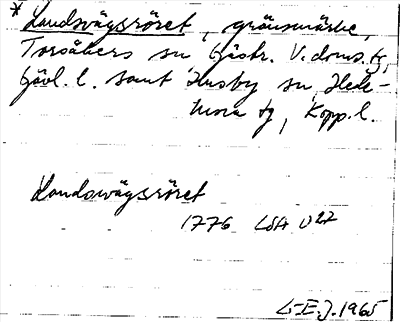 * Landsvägsröret, gränsmärke,
Torsåkers sn Gästr. V. doms. tg,
Gävl. l. samt Husby sn, Hede-
mora tg, Kopp. l.
Landswägsröret
1776 LSA U27
G.E.J. 1965